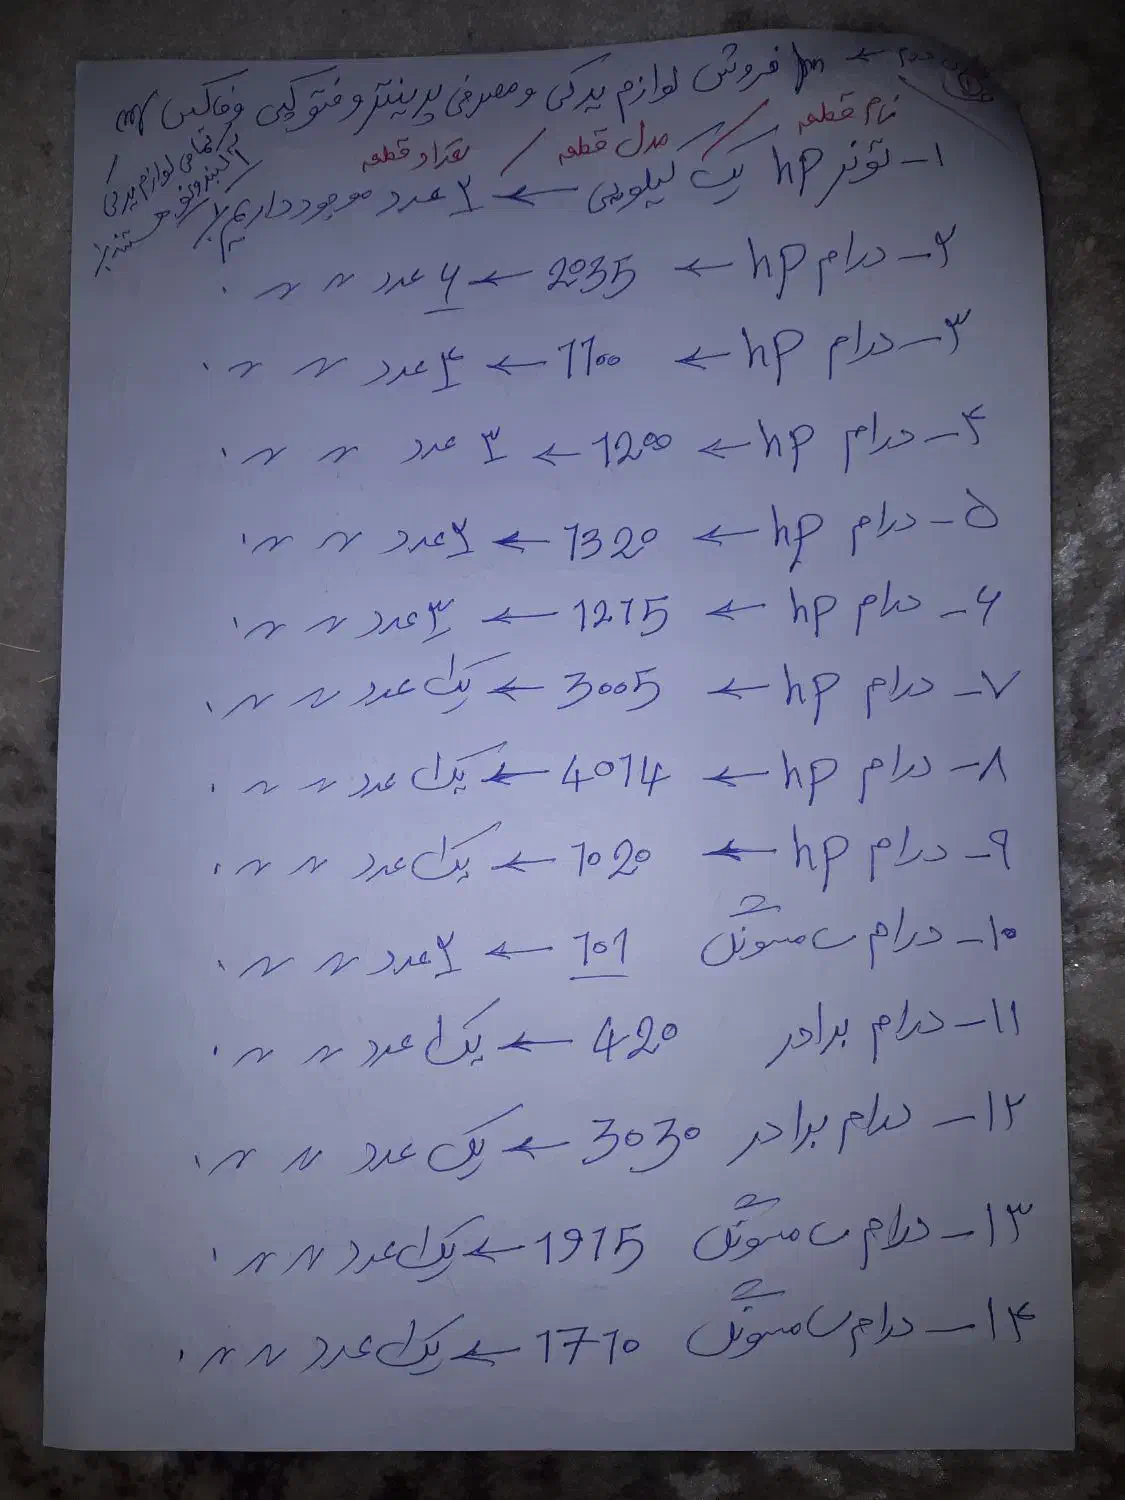 فروش لوازم یدکی و مصرفی پرینتر و فتوکپی و فاکس
نام قطعه / مدل قطعه / تعداد قطعه
تمامی لوازم یدکی
آکبند و نو هستند
۱- تونر hp یک کیلویی ← ۲ عدد موجود داریم
۲- درام hp ← 2035 ← ۶ عدد 〃 〃 .
۳- درام hp ← 1100 ← ۴ عدد 〃 〃 .
۴- درام hp ← 1200 ← ۳ عدد 〃 〃 .
۵- درام hp ← 1320 ← ۲ عدد 〃 〃 .
۶- درام hp ← 1215 ← ۳ عدد 〃 〃 .
۷- درام hp ← 3005 ← یک عدد 〃 〃 .
۸- درام hp ← 4014 ← یک عدد 〃 〃 .
۹- درام hp ← 1020 ← یک عدد 〃 〃 .
۱۰- درام سامسونگ 101 ← ۲ عدد 〃 〃 .
۱۱- درام برادر 420 ← یک عدد 〃 〃 .
۱۲- درام برادر 3030 ← یک عدد 〃 〃 .
۱۳- درام سامسونگ 1915 ← یک عدد 〃 〃 .
۱۴- درام سامسونگ 1710 ← یک عدد 〃 〃 .